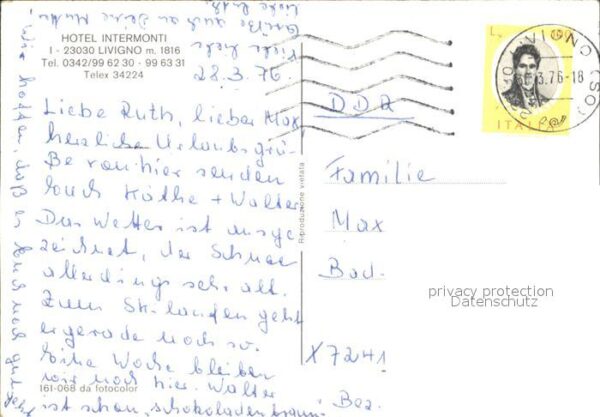 HOTEL INTERMONTI
I - 23030 LIVIGNO m. 1816
Tel. 0342/99 62 30 - 99 63 31
Telex 34224
28.3.76
Liebe Ruth, lieber Max,
herzliche Urlaubsgrü-
ße von hier senden
Euch Käthe + Walter
Das Wetter ist ausge
zeichnet, der Schnee
allerdings sehr alt.
Zum Ski-laufen geht
er gerade noch so.
Eine Woche bleiben
wir noch hier. Walter
ist schon "schokoladenbraun"
Wir hoffen, daß es Euch noch gut geht
Grüße auch an Deine Mutter
Viele liebe
161-068 da fotocolor
Riproduzione vietata
LIVIGNO (SO)
3.76-18
L.
ITALIA
DDR
Familie
Max
Bad.
privacy protection
Datenschutz
X7241
Bez.